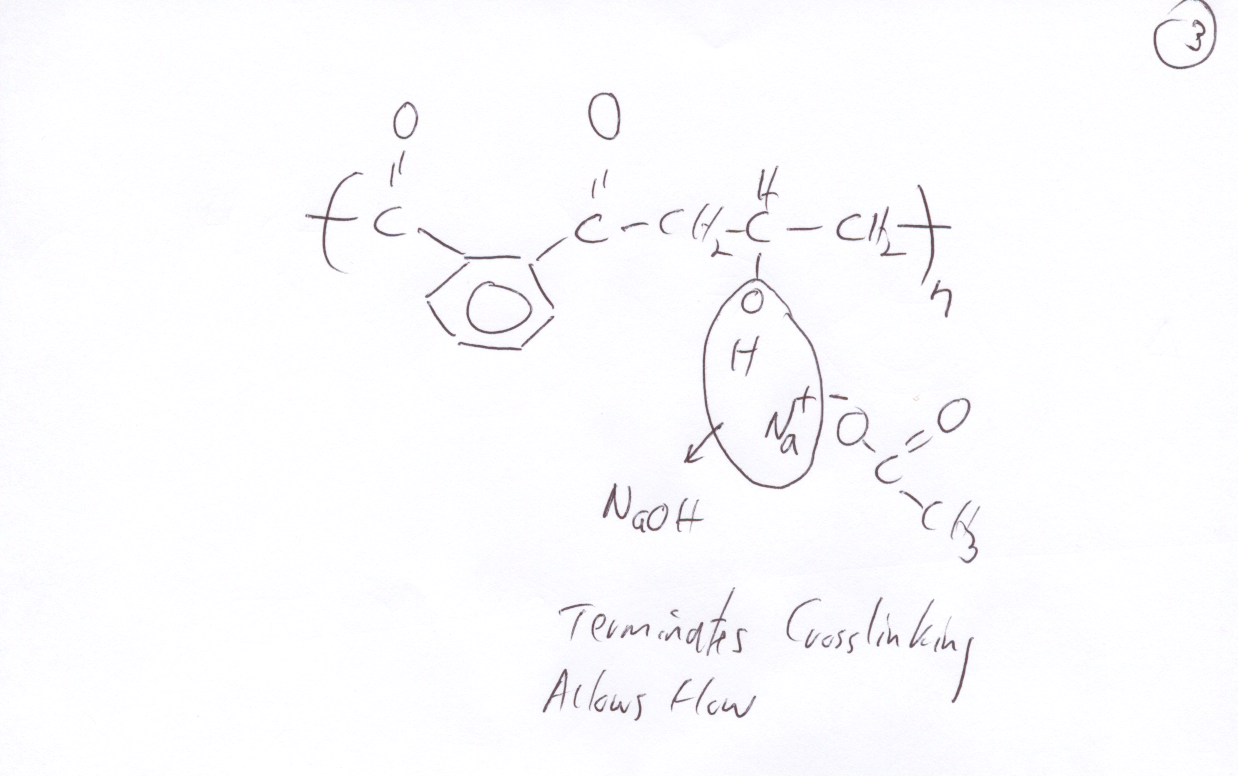 3
O O
H
C C - CH2 - C - CH2 n
O
H
Na+ -O O
C
NaOH CH3
Terminates Crosslinking
Allows Flow